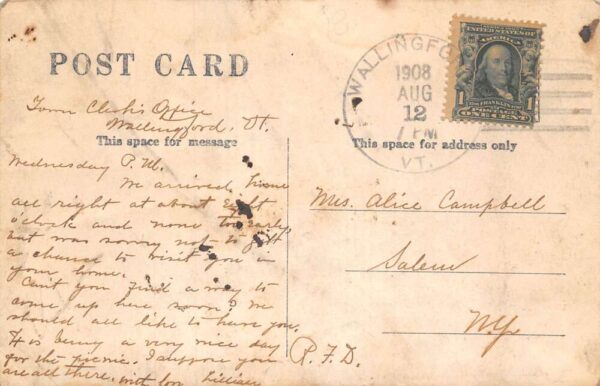 POST CARD
WALLINGFO
1908
AUG
12
7 PM
VT.
UNITED STATES OF
AMERICA
1 1
FRANKLIN
POSTAGE
ONE CENT
Town Clerk's Office
Wallingford, Vt.
This space for message
This space for address only
Wednesday P.M.
We arrived home
all right at about eight
o'clock and none too early
but was sorry not to get
a chance to visit you in
your home.
Can't you find a way to
come up here soon? We
should all like to have you.
It is being a very nice day
for the picnic. I suppose you
are all there, with love Lillian
Mrs. Alice Campbell
Salem
NY
R.F.D.